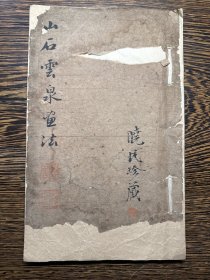 山石雲泉画法
曉珍藏